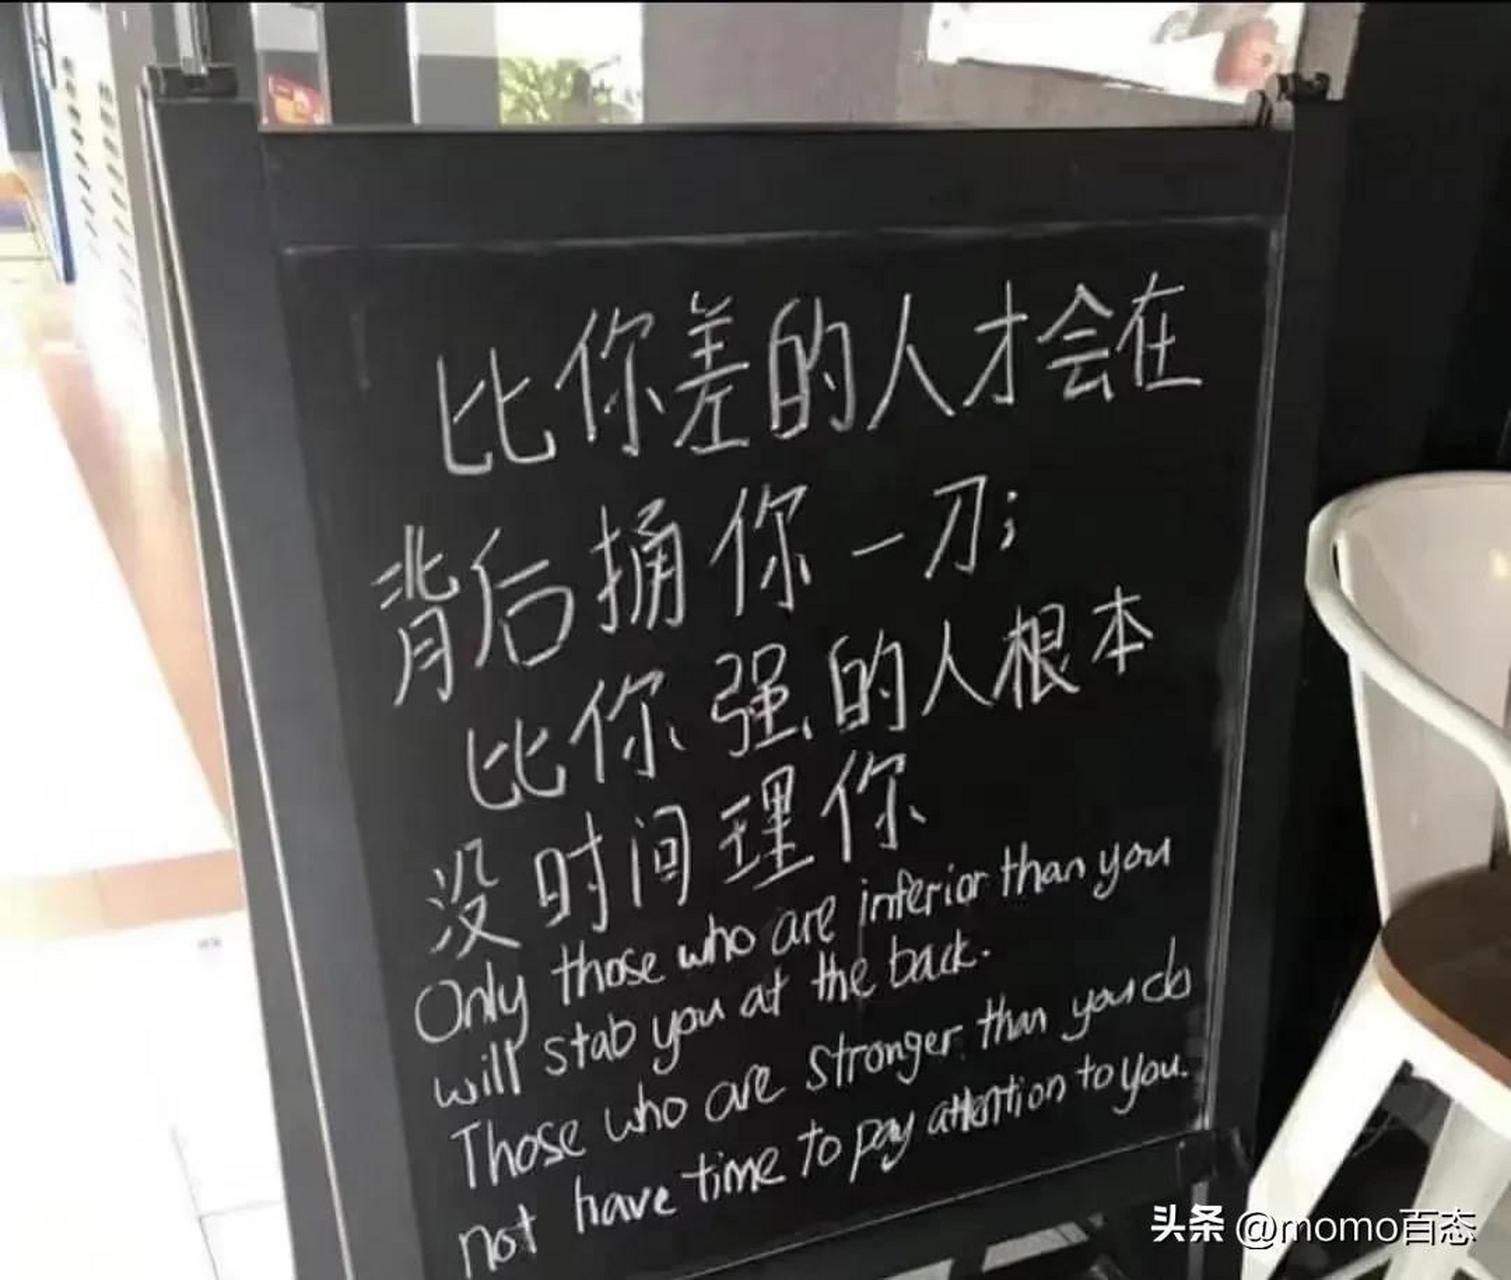 比你差的人才会在
背后捅你一刀;
比你强的人根本
没时间理你
Only those who are inferior than you
will stab you at the back.
Those who are stronger than you do
not have time to pay attention to you.
头条 @momo百态